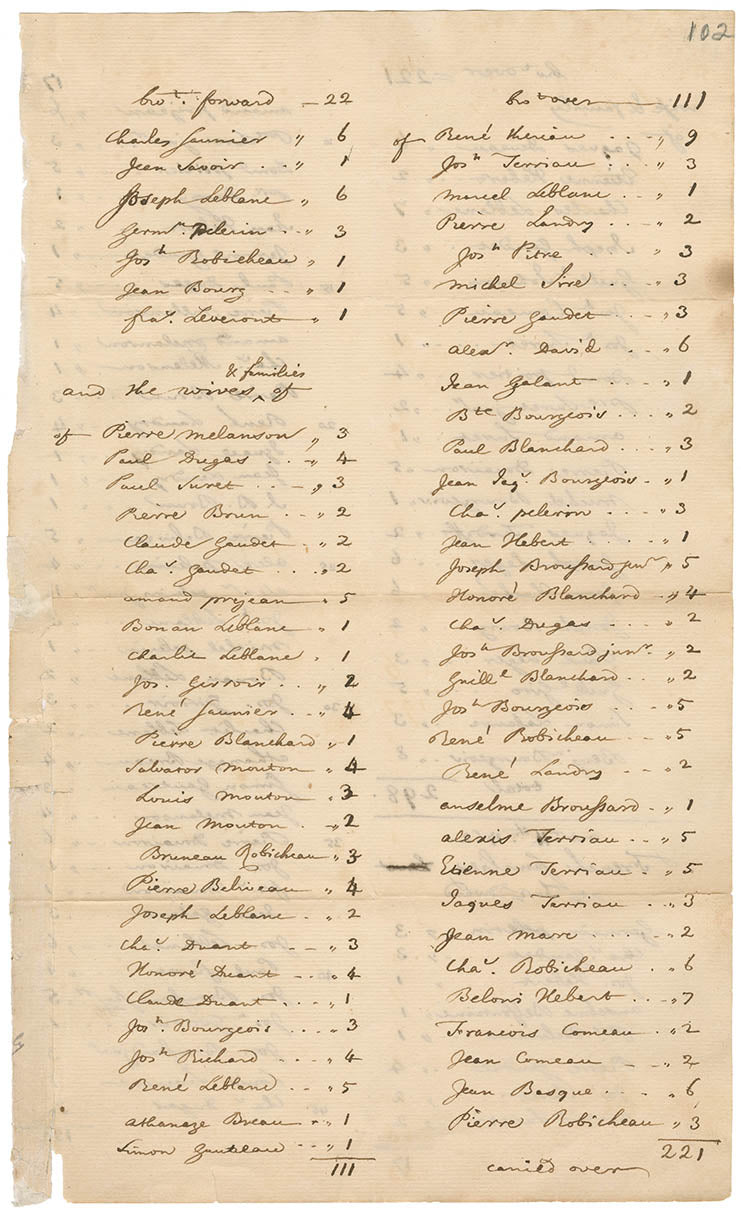 102
bro.t forward — 22
Charles Saunier " 6
Jean Savoir . . " 1
Joseph Leblanc " 6
Germ.n Pelerin . " 3
Jos.h Robicheau " 1
Jean Bourg . . " 1
fra.s Leveront " 1
& families
and the wives ^ of
of Pierre melanson " 3
Paul Dugas . . — " 4
Paul Suret . . — " 3
Pierre Brun . . " 2
Claude Gaudet . " 2
Cha.s Gaudet . . . " 2
amand prejean " 5
Bonan Leblanc " 1
Charlie Leblanc . 1
Jos. Girroir . . " 2
René Saunier . . " 4
Pierre Blanchard " 1
Salvator mouton " 4
Louis mouton " 3
Jean mouton . . " 2
Bruneau Robicheau " 3
Pierre Beliveau " 4
Joseph Leblanc . " 2
Cha.s Duant . — " 3
Honoré Duant — " 4
Claude Duant . . . " 1
Jos.h Bourgeois . . " 3
Jos.h Richard . . . " 4
René Leblanc . . " 5
athanaze Breau . " 1
Simon Gauteau . . " 1
111
bro.t over — 111
of René theriau . . . " 9
Jos.h Terriau . . " 3
marcel Leblanc . . " 1
Pierre Landry . . — " 2
Jos.h Pitre . . . " 3
michel Sire . . . " 3
Pierre Gaudet . . . " 3
alex.r David . . . " 6
Jean Galant . . . " 1
B.te Bourgeois . . . " 2
Paul Blanchard . . . " 3
Jean Jaq.s Bourgeois . " 1
Cha.s pelerin . . . " 3
Jean Hebert . . . . " 1
Joseph Broussard jun.r " 5
Honoré Blanchard — " 4
Cha.s Dugas . . . — " 2
Jos.h Broussard jun.r . " 2
Guill.e Blanchard . . " 2
Jos.h Bourgeois . . . " 5
René Robicheau . . . " 5
René Landry . — " 2
anselme Broussard . " 1
alexis Terriau . . " 5
Etienne Terriau . " 5
Jaques Terriau . . . " 3
Jean marc . . . " 2
Cha.s Robicheau . " 6
Beloni Hebert . . . — " 7
Francois Comeau . " 2
Jean Comeau — — " 2
Jean Basque . . . " 6
Pierre Robicheau " 3
221
carried over